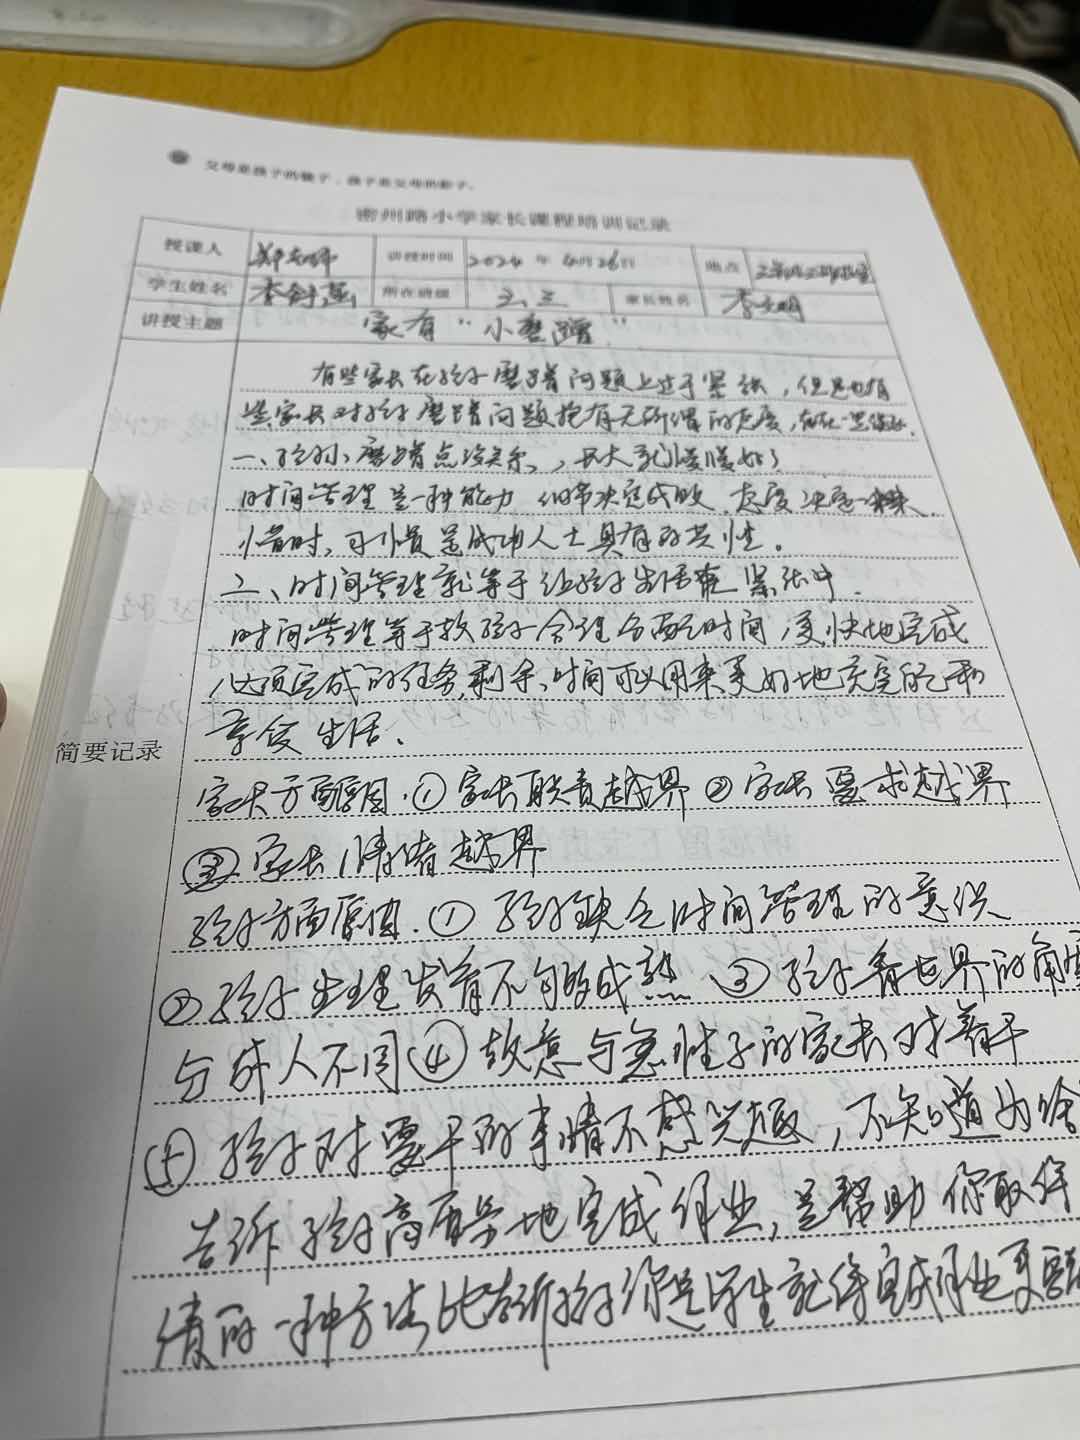 父母是孩子的镜子，孩子是父母的影子。
密州路小学家长课程培训记录
授课人 郑老师 讲授时间 2024 年 4月26日 地点
学生姓名 李舒 所在班级 三、三 家长姓名 李文明
讲授主题 家有“小磨蹭”
有些家长在孩子磨蹭问题上过于紧张，但是也有
些家长对孩子磨蹭问题抱有无所谓的态度，存在一些误区.
一、孩子小磨蹭点没关系，长大了就慢慢好了
时间管理是一种能力 细节决定成败 态度决定未来
惜时，习惯是成功人士具有的共性。
二、时间管理就等于让孩子生活在紧张中.
时间管理等于教孩子合理分配时间，更快地完成
必须完成的任务，剩余时间可以用来更好地充实自己和
享受生活、
简要记录
家长方面原因.① 家长职责越界 ② 家长要求越界
③ 家长情绪越界
孩子方面原因.① 孩子缺乏时间管理的意识
② 孩子生理发育不够成熟 ③ 孩子看世界的角度
与成人不同 ④ 故意与急性子的家长对着干
⑤ 孩子对要干的事情不感兴趣，不知道为啥
告诉孩子高质量地完成作业，是帮助你取得
绩的一种方法比告诉孩子你是学生就得完成作业更